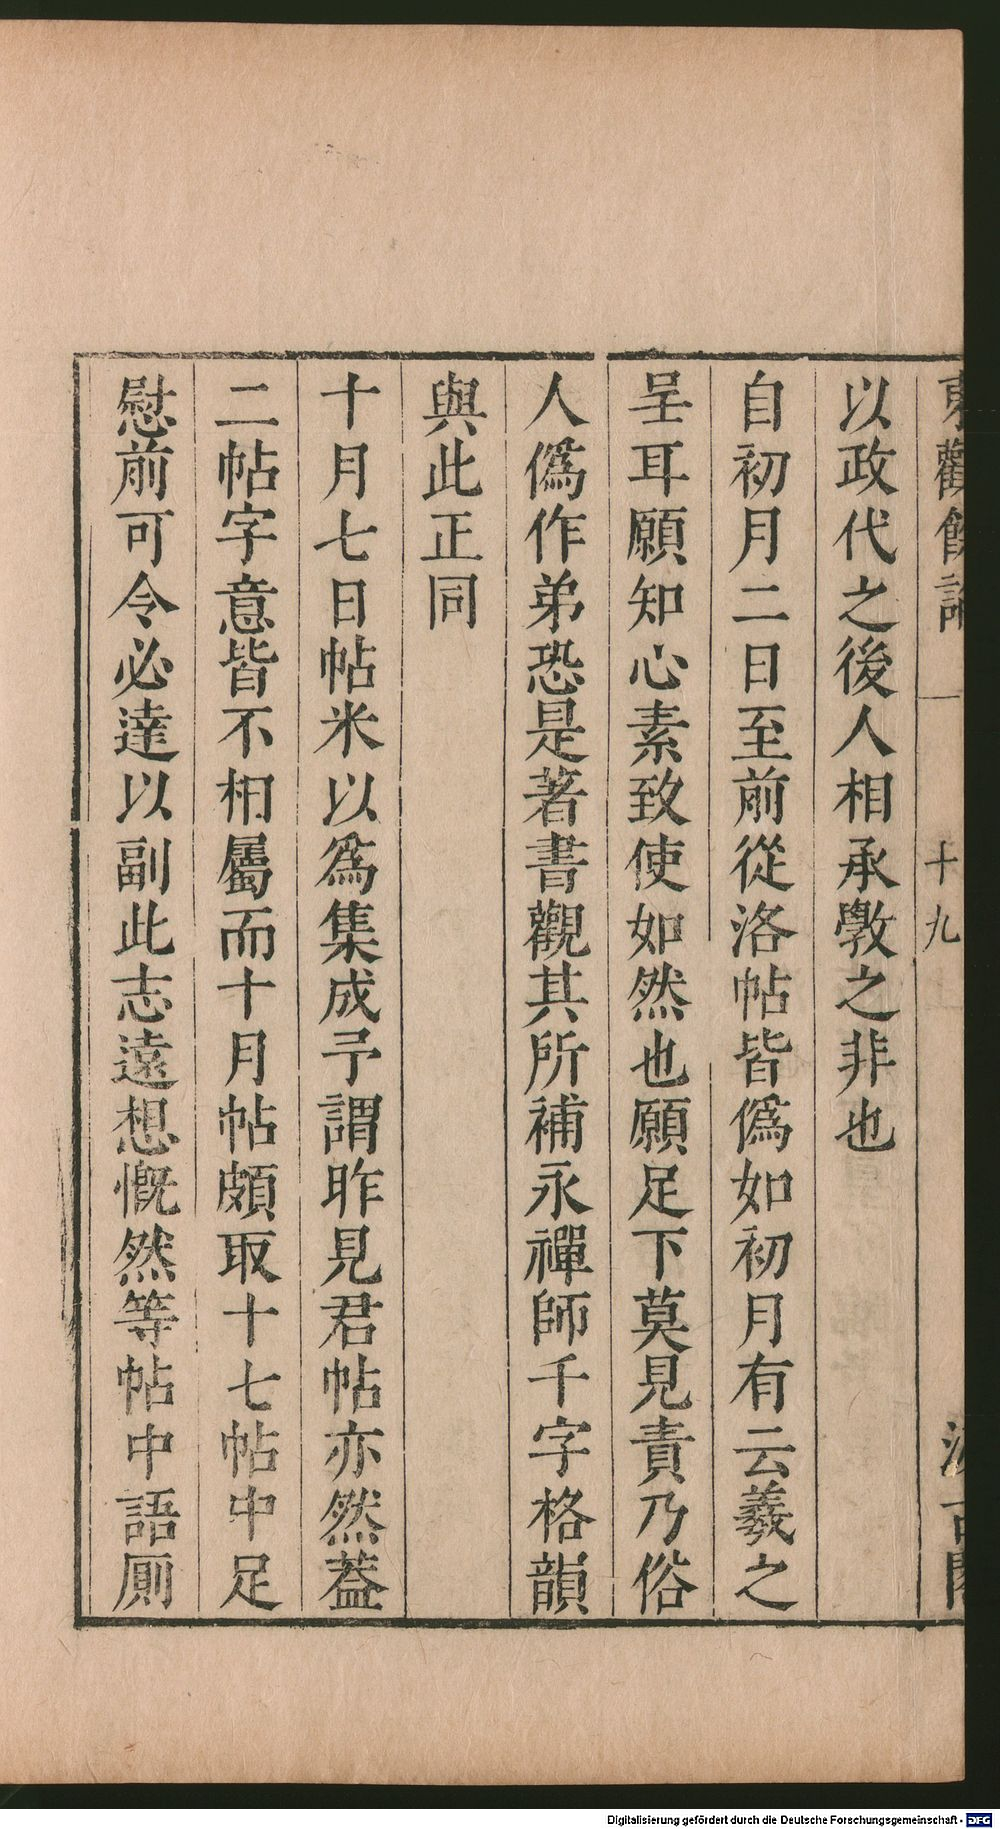 東觀餘論 一 十九 汲古閣
以政代之後人相承斆之非也
自初月二日至前從洛帖皆僞如初月有云羲之
呈耳願知心素致使如然也願足下莫見責乃俗
人僞作弟恐是著書觀其所補永禪師千字格韻
與此正同
十月七日帖米以爲集成予謂昨見君帖亦然葢
二帖字意皆不相屬而十月帖頗取十七帖中足
慰前可令必達以副此志遠想慨然等帖中語厠
Digitalisierung gefördert durch die Deutsche Forschungsgemeinschaft - DFG